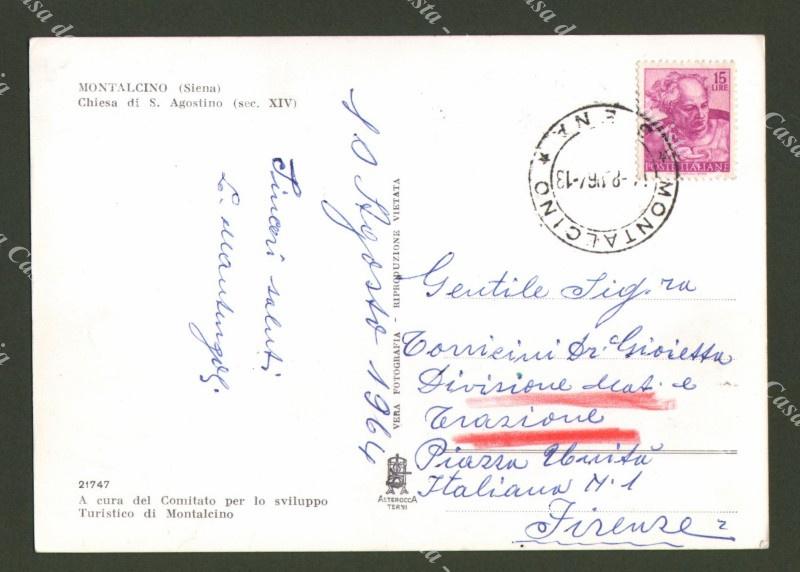 MONTALCINO (Siena)
Chiesa di S. Agostino (sec. XIV)
10 Agosto 1964
Sinceri saluti
VERA FOTOGRAFIA - RIPRODUZIONE VIETATA
15
LIRE
POSTE ITALIANE
MONTALCINO
Gentile Sig.ra
Torricini Dr. Gioietta
Divisione Mat. e
Trazione
Piazza Unità
Italiana N. 1
Firenze
21747
A cura del Comitato per lo sviluppo
Turistico di Montalcino
ALTEROCCA
TERNI